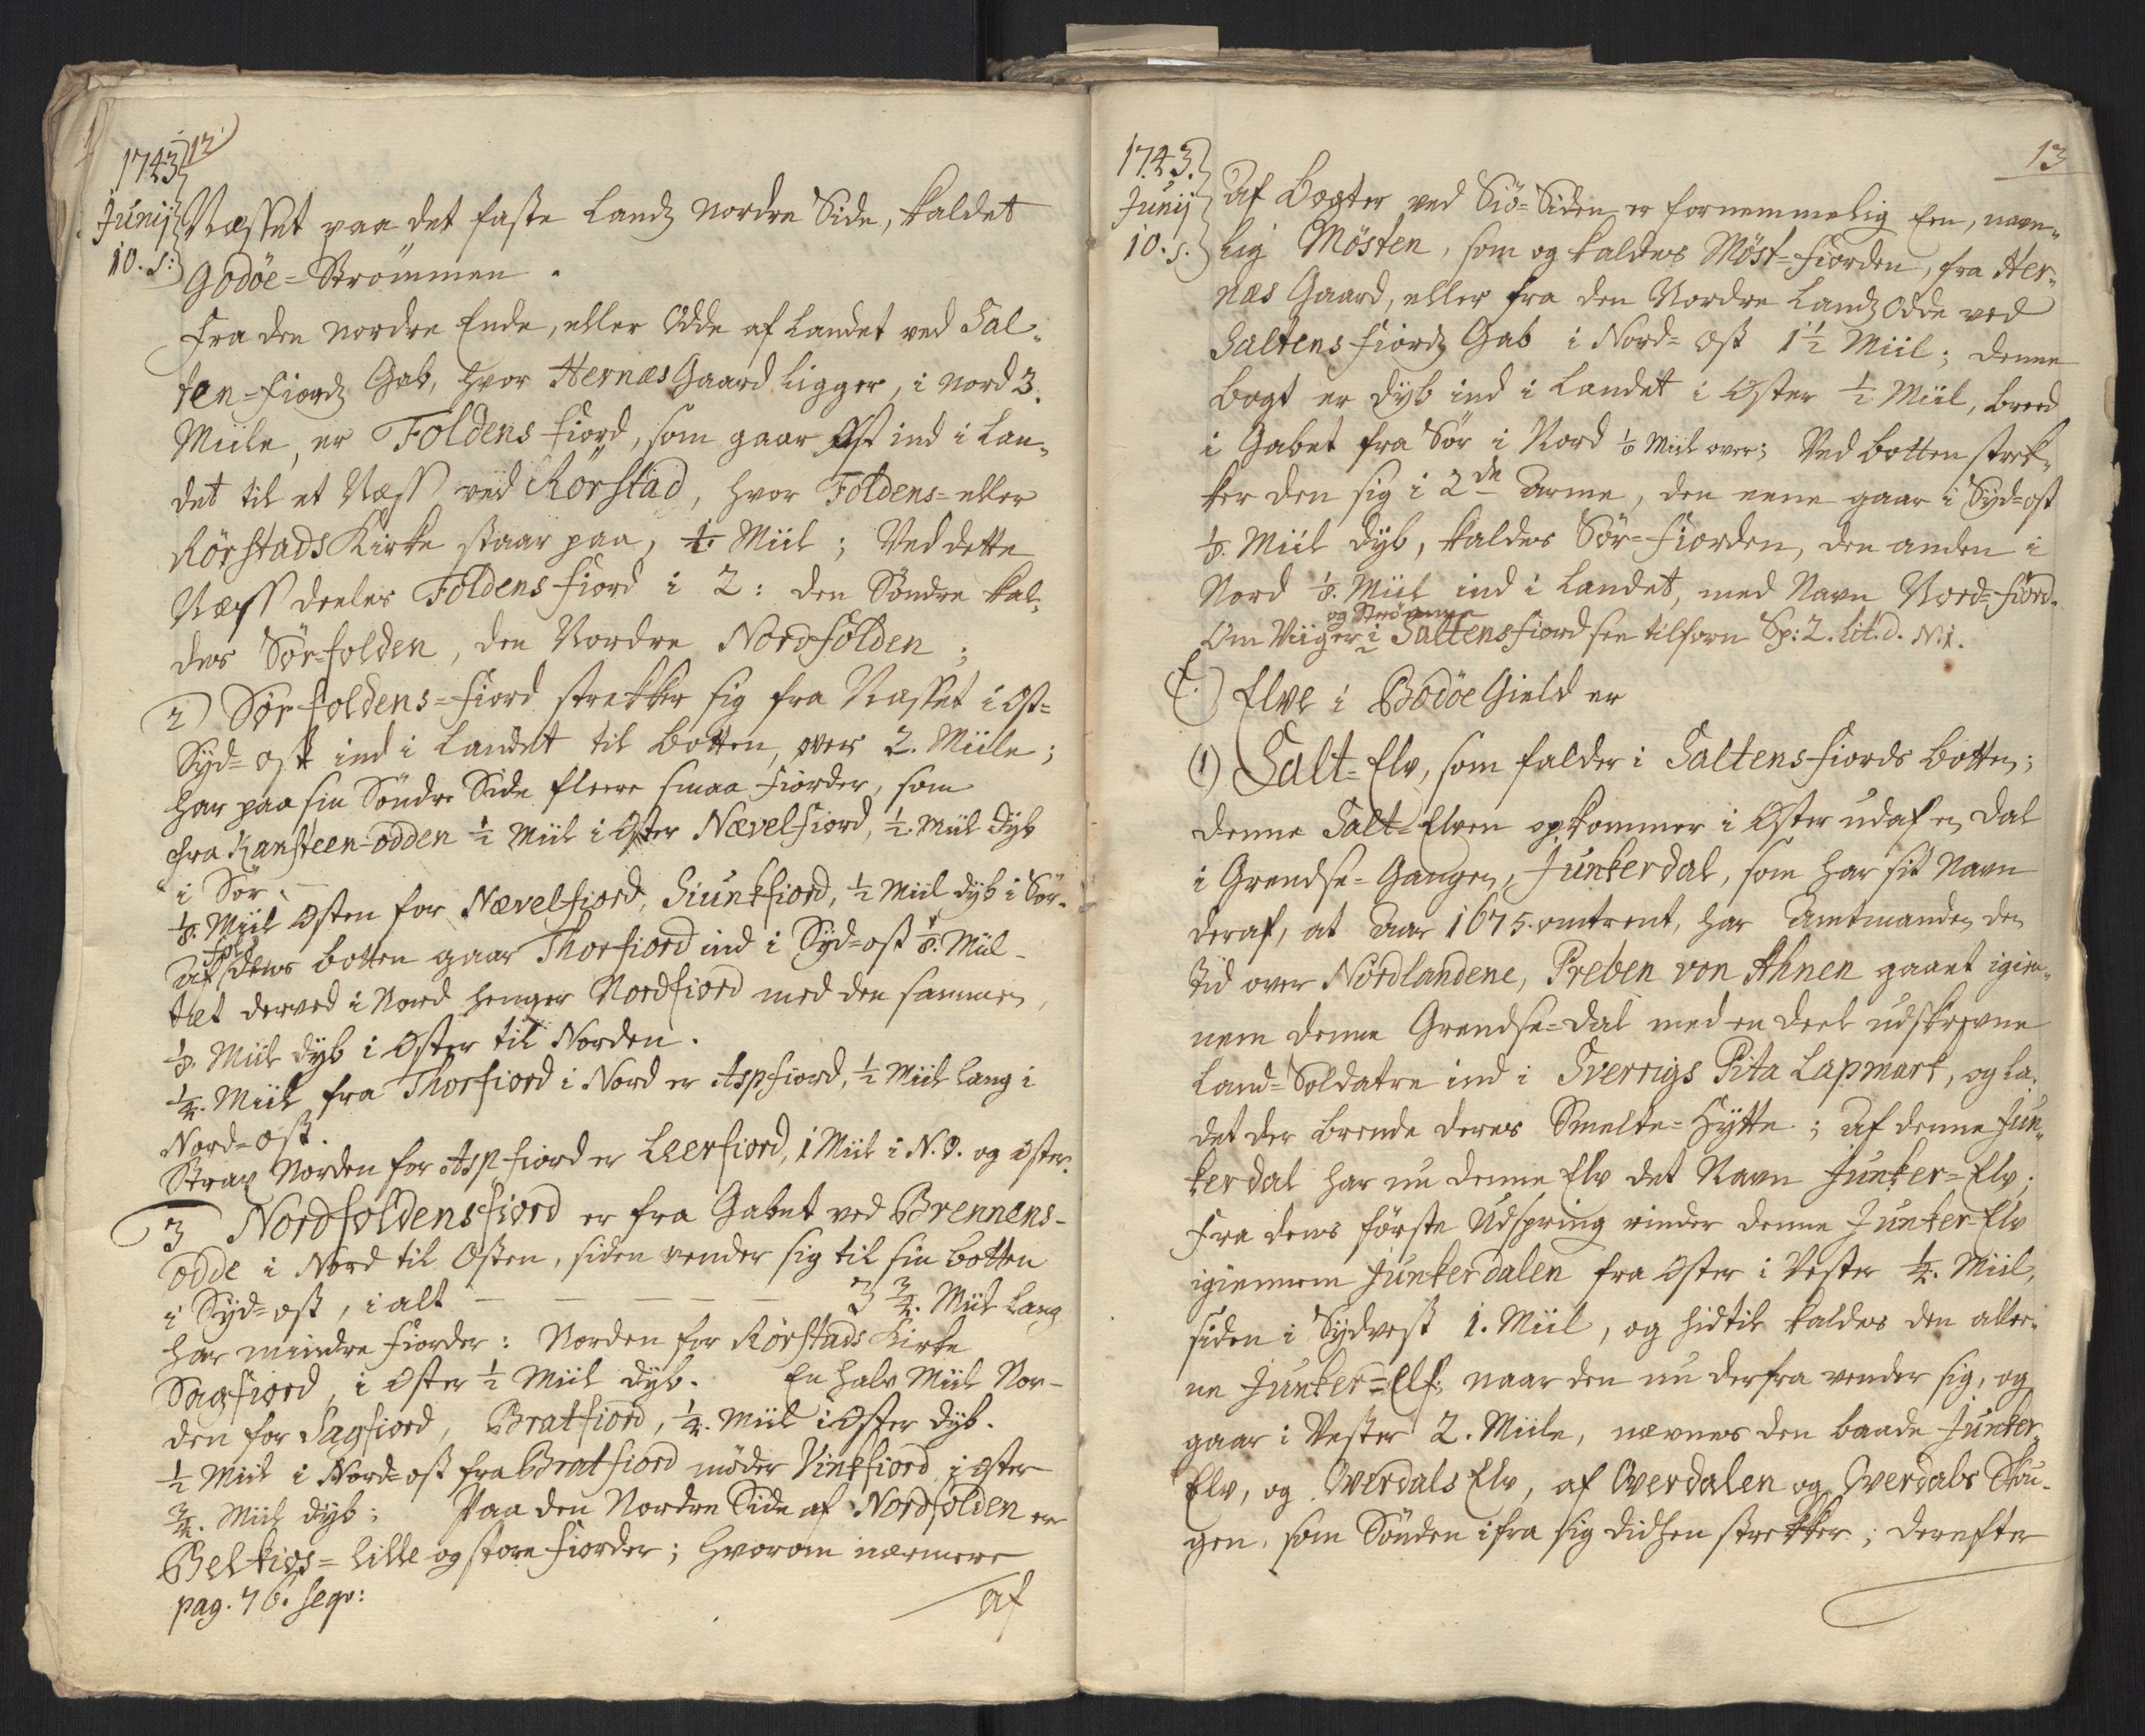 12
1743
Junij
10. s:
Næsset paa det faste Landz Nordre Side, kaldet
Godöe=Strömmen.
Fra den nordre Ende, eller Odde af Landet ved Sal-
ten=Fiordz Gab, hvor Hernæs Gaard ligger, i Nord 3.
Miile, er Foldens Fiord, som gaar Øst ind i Lan-
det til et Næss ved Rörstad, hvor Foldens= eller
Rörstads Kirke staar paa, 1. Miil; Ved dette
Næss deeles Foldens Fiord i 2: den Söndre kal-
des Sör=folden, den Nordre Nordfolden;
2) Sörfoldens=Fiord strekker sig fra Næsset i Ost=
Syd=ost ind i Landet til Botten, over 2. Miile;
har paa sin Söndre Side fleere smaa Fiorder, som
fra Kansteen-odden ½ Miil i Øster Nævelfiord, ½ Miil dyb
i Sör.
⅛. Miil Østen for Nævelfiord, Siunkfiord, ½ Miil dyb i Sör.
Af dens Botten gaar Thorfiord ind i Syd=ost ⅛. Miil
tæt derved i Nord henger Nordfiord med den sammen,
⅛. Miil dyb i Øster til Norden.
¼. Miil fra Thorfiord i Nord er Aspfiord, ½ Miil lang i
Nord=ost.
Strax Norden for Aspfiord er Leerfiord, 1 Miil i N.O. og Øster.
3 Nordfoldensfiord er fra Gabet ved Brennens-
odde i Nord til Østen, siden vender sig til sin Botten
i Syd=ost, i alt — — — — — 3 ¾. Miil lang
har mindre Fiorder: Norden for Rörstads Kirke
Sagfiord, i Øster ½ Miil dyb. En halv Miil Nor-
den for Sagfiord, Bratfiord, ¼. Miil i Øster dyb.
½ Miil i Nord=ost fra Bratfiord möder Vinkfiord i Øster
¾. Miil dyb; Paa den Nordre Side af Nordfolden er
Belkios= Lille og store Fiorder; hvorom nærmere
pag. 76. seqv:
af
13
1743.
Junij
10. s.
Af Bogter ved Siö=Siden er fornemmelig Een, navn-
lig Mösten, som og kaldes Möst=Fiorden, fra Her-
næs Gaard, eller fra den Nordre Landz Odde ved
Saltens Fiordz Gab i Nord=Ost 1½ Miil; denne
Bogt er dyb ind i Landet i Øster ½ Miil, breed
i Gabet fra Sör i Nord ⅛ Miil over; Ved Botten strek-
ker den sig i 2de Arme, den eene gaar i Syd=ost
⅛. Miil dyb, kaldes Sör=Fiorden, den anden i
Nord ⅛. Miil ind i Landet, med Navn Nord=Fiord.
og Strömme
Om Viiger i Saltensfiord see tilforn Sp: 2. lit. d. N. 1.
E.) Elve i Bodöe Gield er
(1) Salt=Elv, som falder i Saltens Fiords Botten;
denne Salt=Elven opkommer i Øster udaf en Dal
i Grendse=Gangen, Junkerdal, som har sit Navn
deraf, at Aar 1675. omtrent, har Amtmanden den
tid over Nordlandene, Preben von Ahnen gaaet igien-
nem denne Grendse=Dal med en deel udskrevne
Land=Soldatre ind i Sverrigs Pita Lapmark, og la-
det der brende deres Smelte=Hytte; af denne Jun-
kerdal har nu denne Elv det Navn Junker=Elv;
Fra dens förste Udspring rinder denne Junker=Elv
igiennem Junkerdalen fra Øster i Vester ¼. Miil,
siden i Sydvest 1. Miil, og hidtil kaldes den alle-
ne Junker=Elf; naar den nu derfra vender sig, og
gaar i Vester 2. Miile, nævnes den baade Junker-
Elv, og Overdals Elv, af Overdalen og Overdals Sku-
gen, som Sönden ifra sig didhen strekker; derefter